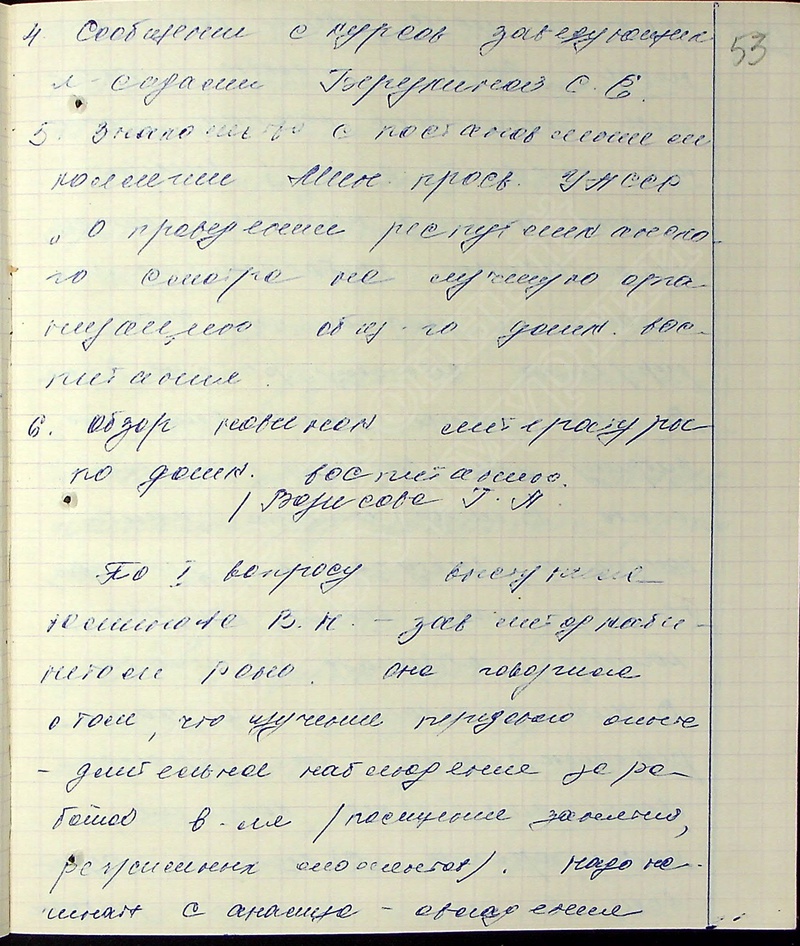 4. Сообщении с курсов заведующих
я-садами С. Е.
5. Знакомство с постановлением
коллегии Мин. просв. УАССР
„О проведении республиканско-
го смотра на лучшую орга
низацию общ-го дошк. вос-
питания.
6. Обзор новинок литературы
по дошк. воспитанию.
/ Борисова Г. А.
По I вопросу выступила
В. Н. – зав методкаби-
нетом роно. Она говорила
о том, что изучение передового опыта
– длительное наблюдение за ра-
ботой в-ля /посещение занятия,
режимных моментов/. Надо на-
чинать с анализа – овладения
53